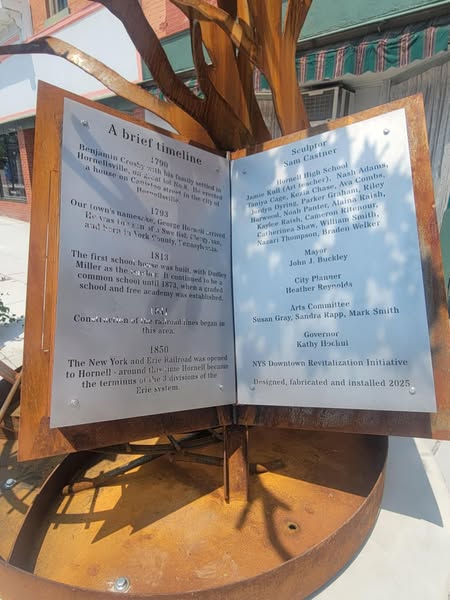 A brief timeline
1790
Benjamin Crosby with his family settled in
Hornellsville, on great lot No.8. He erected
a house on Canisteo street in the city of
Hornellsville
1793
Our town's namesake, George Hornell arrived
He was the son of a Swedish Clergyman,
and born in York County, Pennsylvania.
1813
The first school house was built, with Dudley
Miller as the teacher. It continued to be a
common school until 1873, when a graded
school and free academy was established.
Construction of the railroad lines began in
this area.
1850
The New York and Erie Railroad was opened
to Hornell - around this time Hornell became
the terminus of the 3 divisions of the
Erie system.
Sculptor
Sam Castner
Hornell High School
Jamie Kull (Art teacher), Nash Adams,
Taniya Cage, Kezia Chase, Ava Combs,
Jordyn Dyring, Parker Graham, Riley
Harwood, Noah Panter, Alaina Raish,
Kaylee Raish, Cameron Ribinour,
Catharinea Shaw, William Smith,
Nazari Thompson, Braden Welker
Mayor
John J. Buckley
City Planner
Heather Reynolds
Arts Committee
Susan Gray, Sandra Rapp, Mark Smith
Governor
Kathy Hochul
NYS Downtown Revitalization Initiative
Designed, fabricated and installed 2025